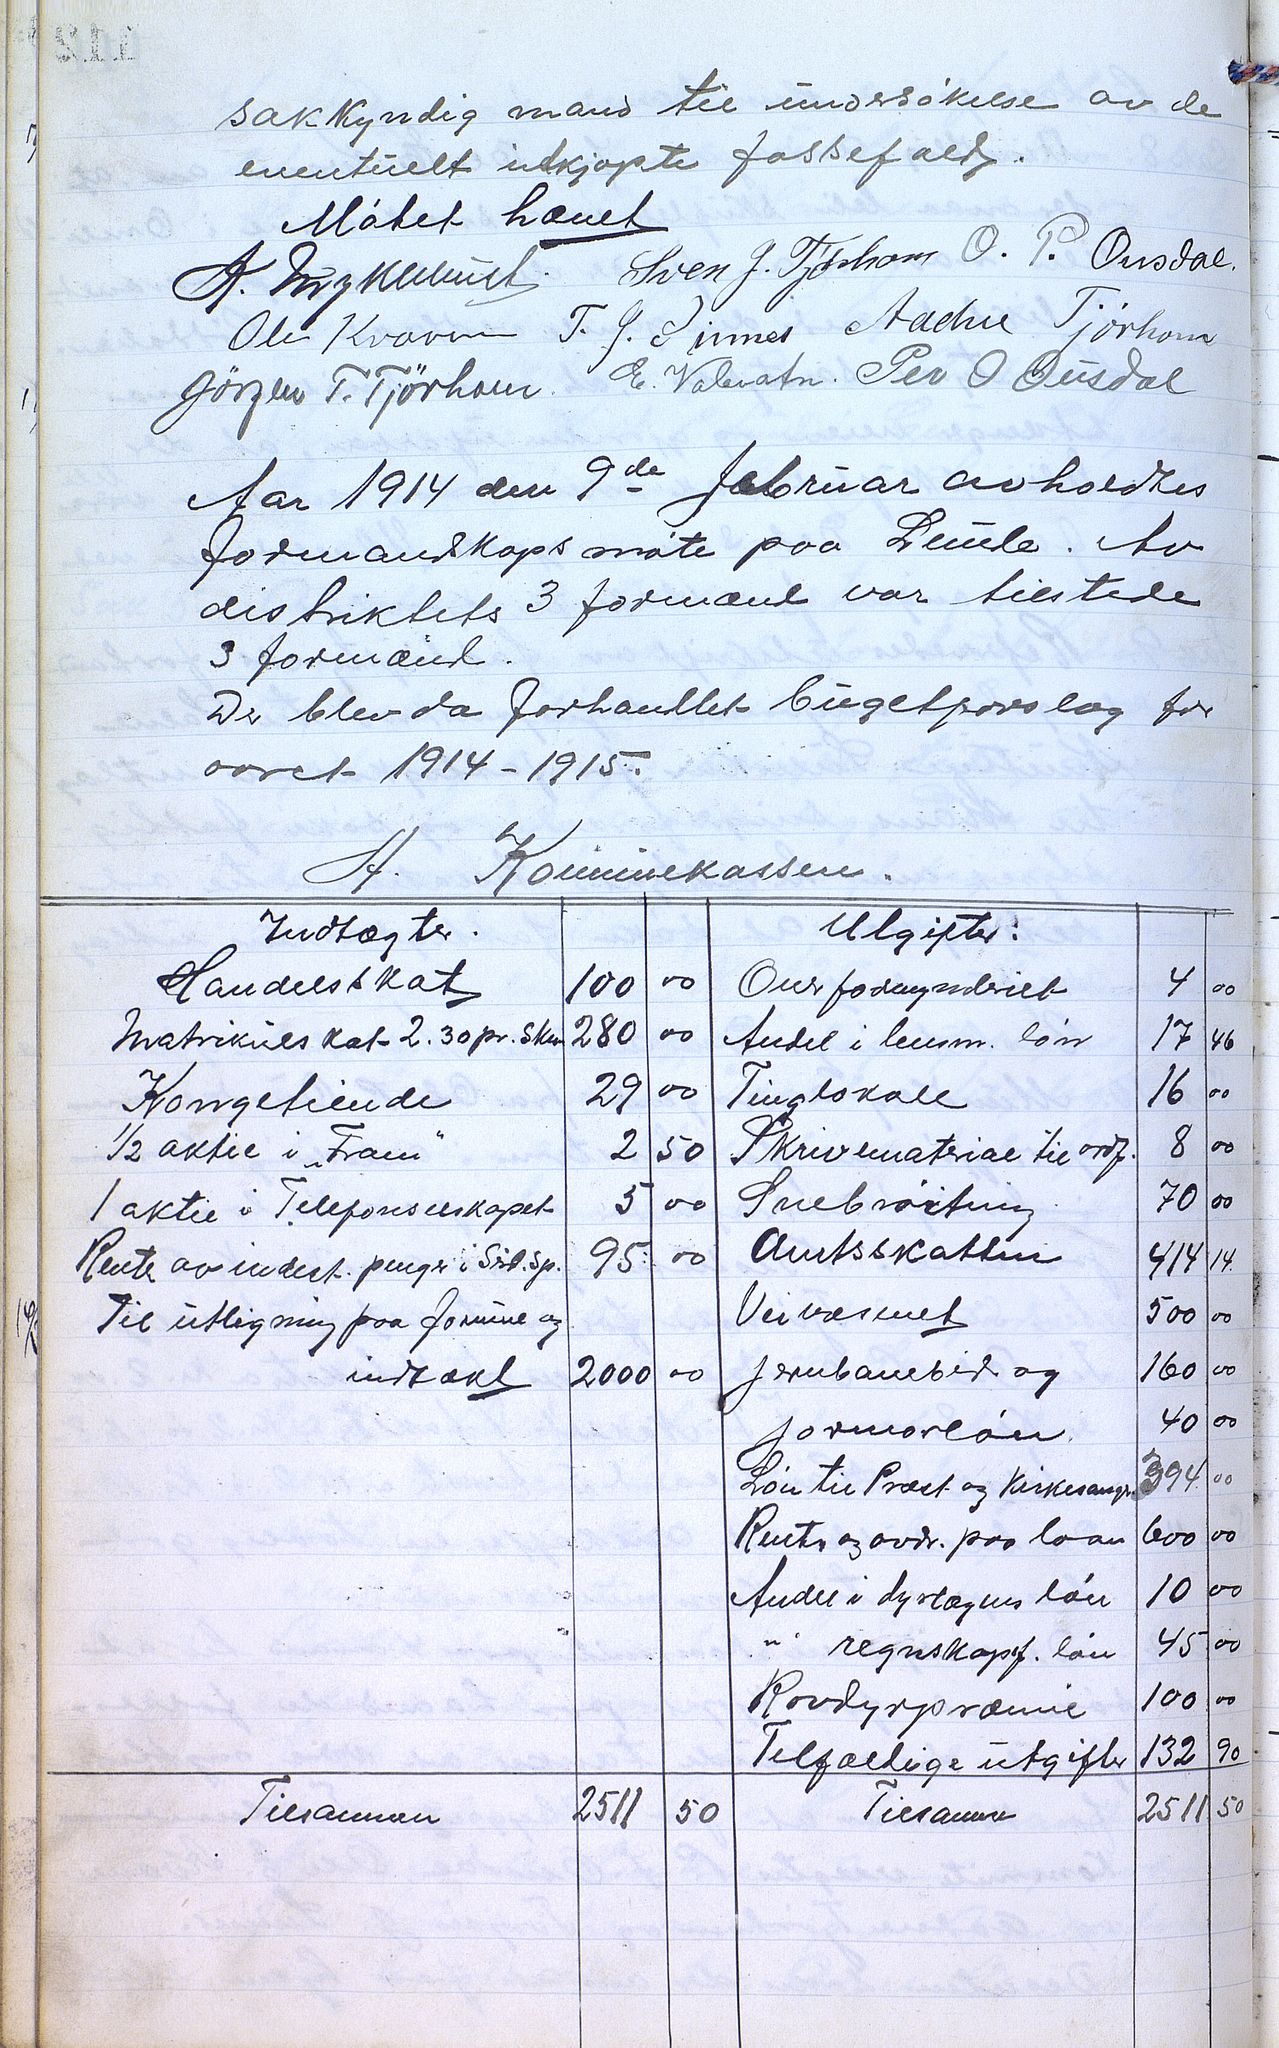 sakkyndig mand til undersökelse av de
eventuelt utkjøpte fossefald.
Mötet hævet
Sven J. Tjörhom O. P. Ousdal.
Ole Kvæven T. J. Sinnes Aadne Tjörhom
Görgen T. Tjörhom. E. Valevatn. Per O Ousdal
Aar 1914 den 9de februar avholdtes
formandskapsmöte paa Lunde. Av
distriktets 3 formænd var tilstede
3 formænd.
Der blev da forhandlet bugetforslag for
aaret 1914-1915.
A. Kommunekassen.
Indtægter. Utgifter:
Handelsskat 100 00 Overformynderiet 4 00
Matrikulskat 2.30 pr. Skm 280 00 Andel i lensm. lön 17 46
Kongetiende 29 00 Tinglokale 16 00
1/2 aktie i "Fram" 2 50 Skrivemateriae til ordf. 8 00
1 aktie i Telefonselskapet 5 00 Snebröiting 70 00
Rente av indest. penge i Sird. Sp. 95 00 Amtsskatten 414 14
Til utligning paa formue og Veivæsenet 500 00
indtækt 2000 00 Jernbanebidrag 160 00
Jormorlön 40 00
Lön til Præst og Kirkesanger 394 00
Rente og avdr. paa laan 600 00
Andel i dyrlægens lön 10 00
" regnskapsf. lön 45 00
Rovdyrpræmie 100 00
Tilfældige utgifter 132 90
Tilsammen 2511 50 Tilsamm 2511 50